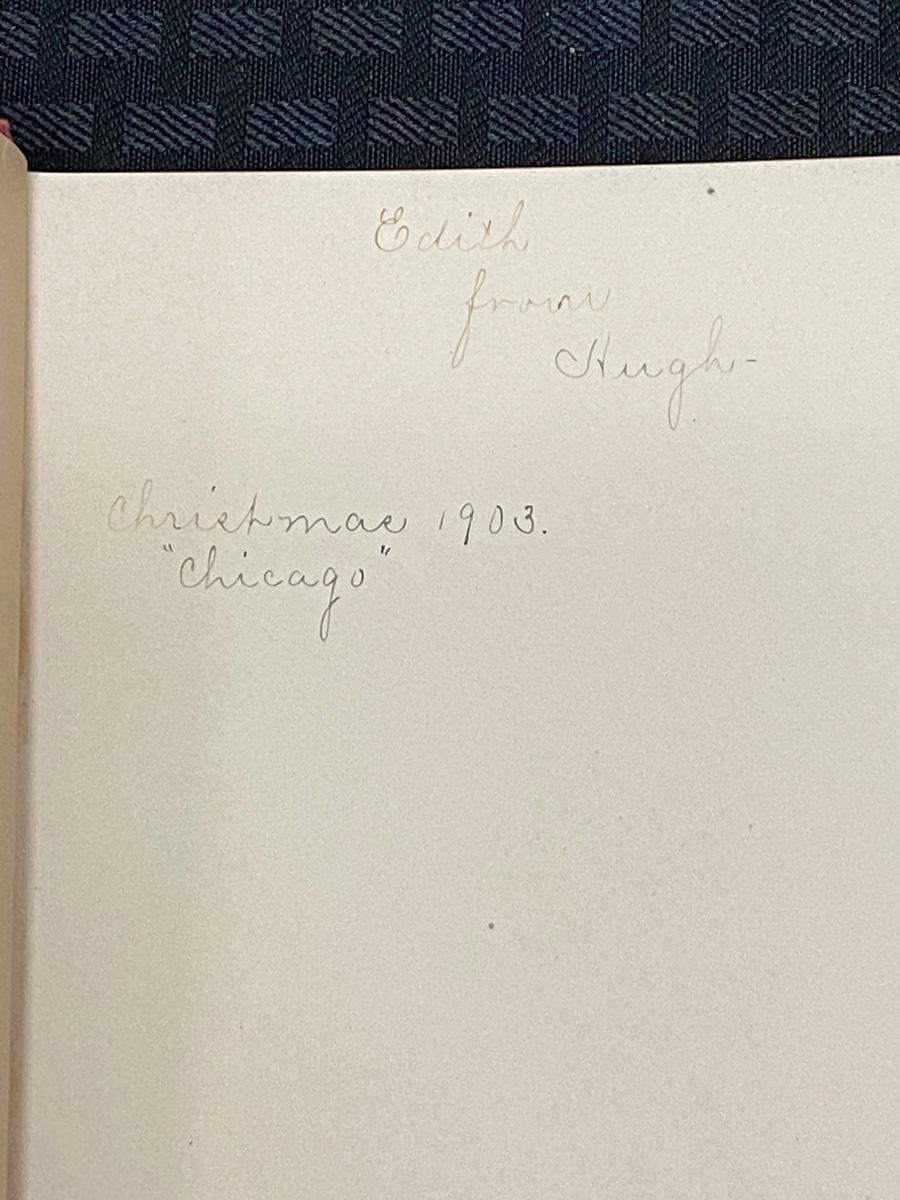 Edith
from
Hugh-
Christmas 1903.
"Chicago"